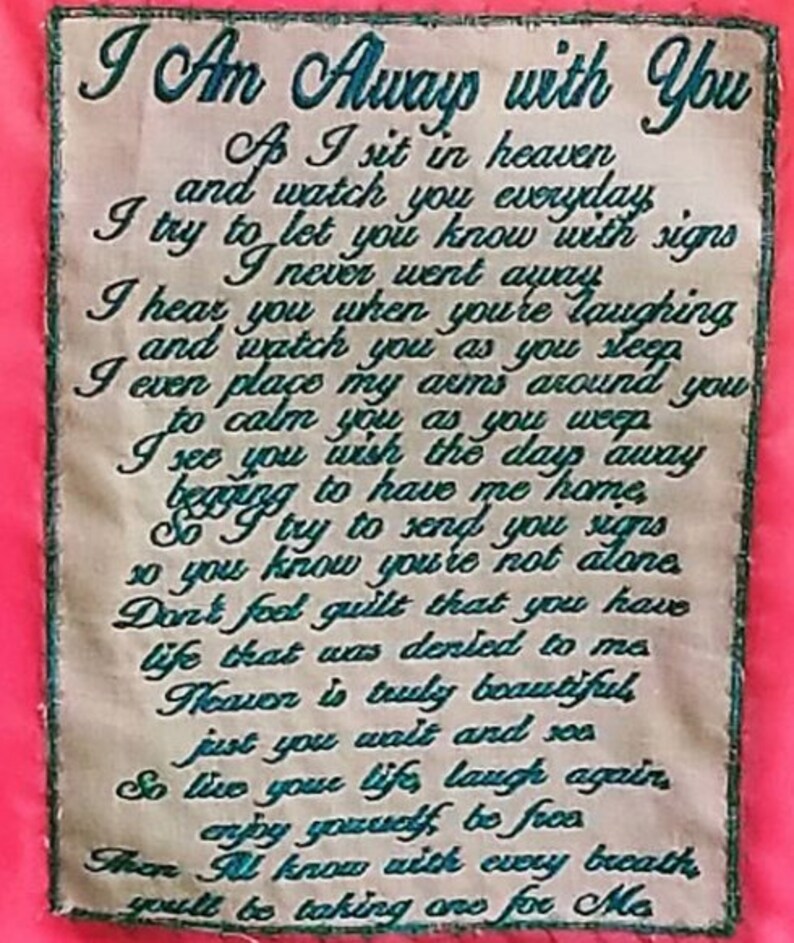 I Am Always with You
As I sit in heaven
and watch you everyday,
I try to let you know with signs
I never went away.
I hear you when you're laughing,
and watch you as you sleep.
I even place my arms around you
to calm you as you weep.
I see you wish the days away
begging to have me home,
So I try to send you signs
so you know you're not alone.
Don't feel guilt that you have
life that was denied to me.
Heaven is truly beautiful,
just you wait and see.
So live your life, laugh again,
enjoy yourself, be free.
Then I'll know with every breath,
you'll be taking one for Me.